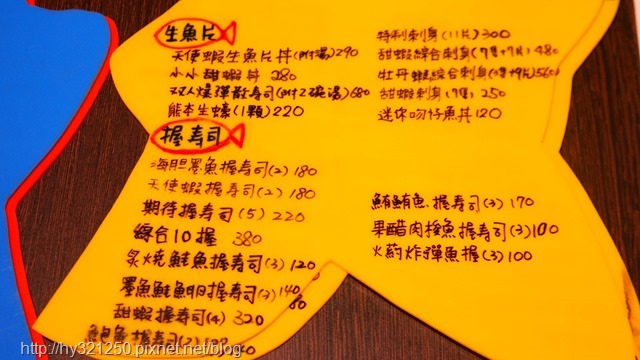 生魚片
天使蝦生魚片丼(附湯)290
小小甜蝦丼 280
双人爆彈散壽司(附2碗湯)680
熊本生蠔(1顆)220
特利刺身(11片)300
甜蝦綜合刺身(7隻+7片)480
牡丹蝦綜合刺身 560
甜蝦刺身(7隻)250
迷你吻仔魚丼120
握壽司
海胆墨魚握壽司(2)180
天使蝦握壽司(2)180
期待握壽司(5)220
綜合10握 380
炙燒鮭魚握壽司(3)120
墨魚鮭魚明握壽司 140
甜蝦握壽司(4)320
鮪鮪魚握壽司(3)170
果醋肉梭魚握壽司(3)100
火葯炸彈魚握(3)100
http://hy321250.pixnet.net/blog